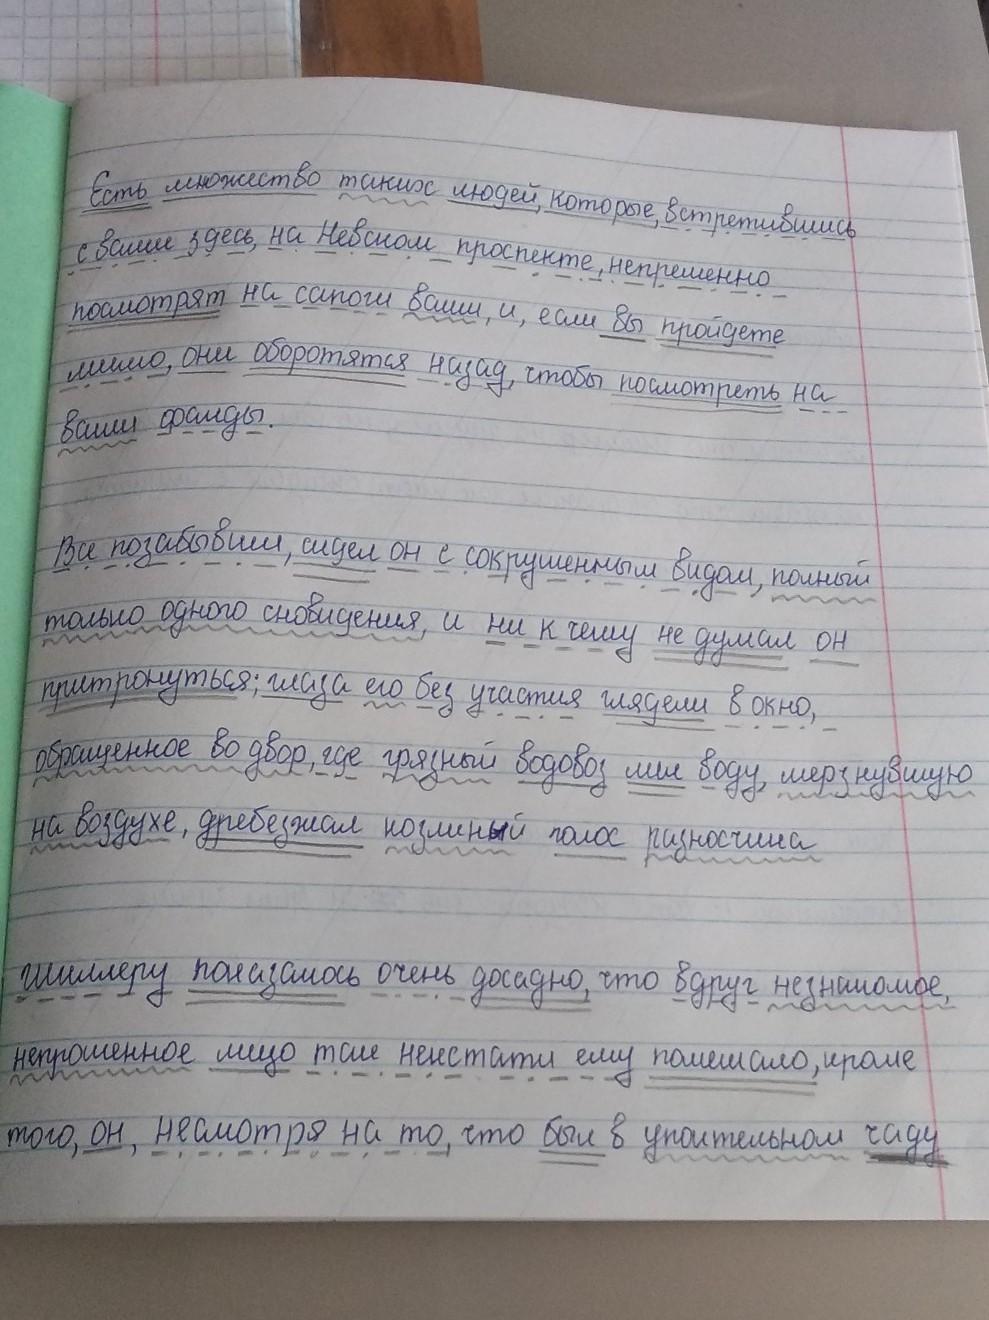 Есть множество таких людей, которые, встретившись
с вами здесь, на Невском проспекте, непременно
посмотрят на сапоги ваши, и, если вы пройдете
мимо, они оборотятся назад, чтобы посмотреть на
ваши фалды.
Все позабывши, сидел он с сокрушенным видом, полный
только одного сновидения, и ни к чему не думал он
притронуться; глаза его без участия глядели в окно,
обращенное во двор, где грязный водовоз лил воду, мерзнувшую
на воздухе, дребезжал козлиный голос разносчика
Шиллеру показалось очень досадно, что вдруг незнакомое,
непрошенное лицо так некстати ему помешало, кроме
того, он, несмотря на то, что был в упоительном чаду